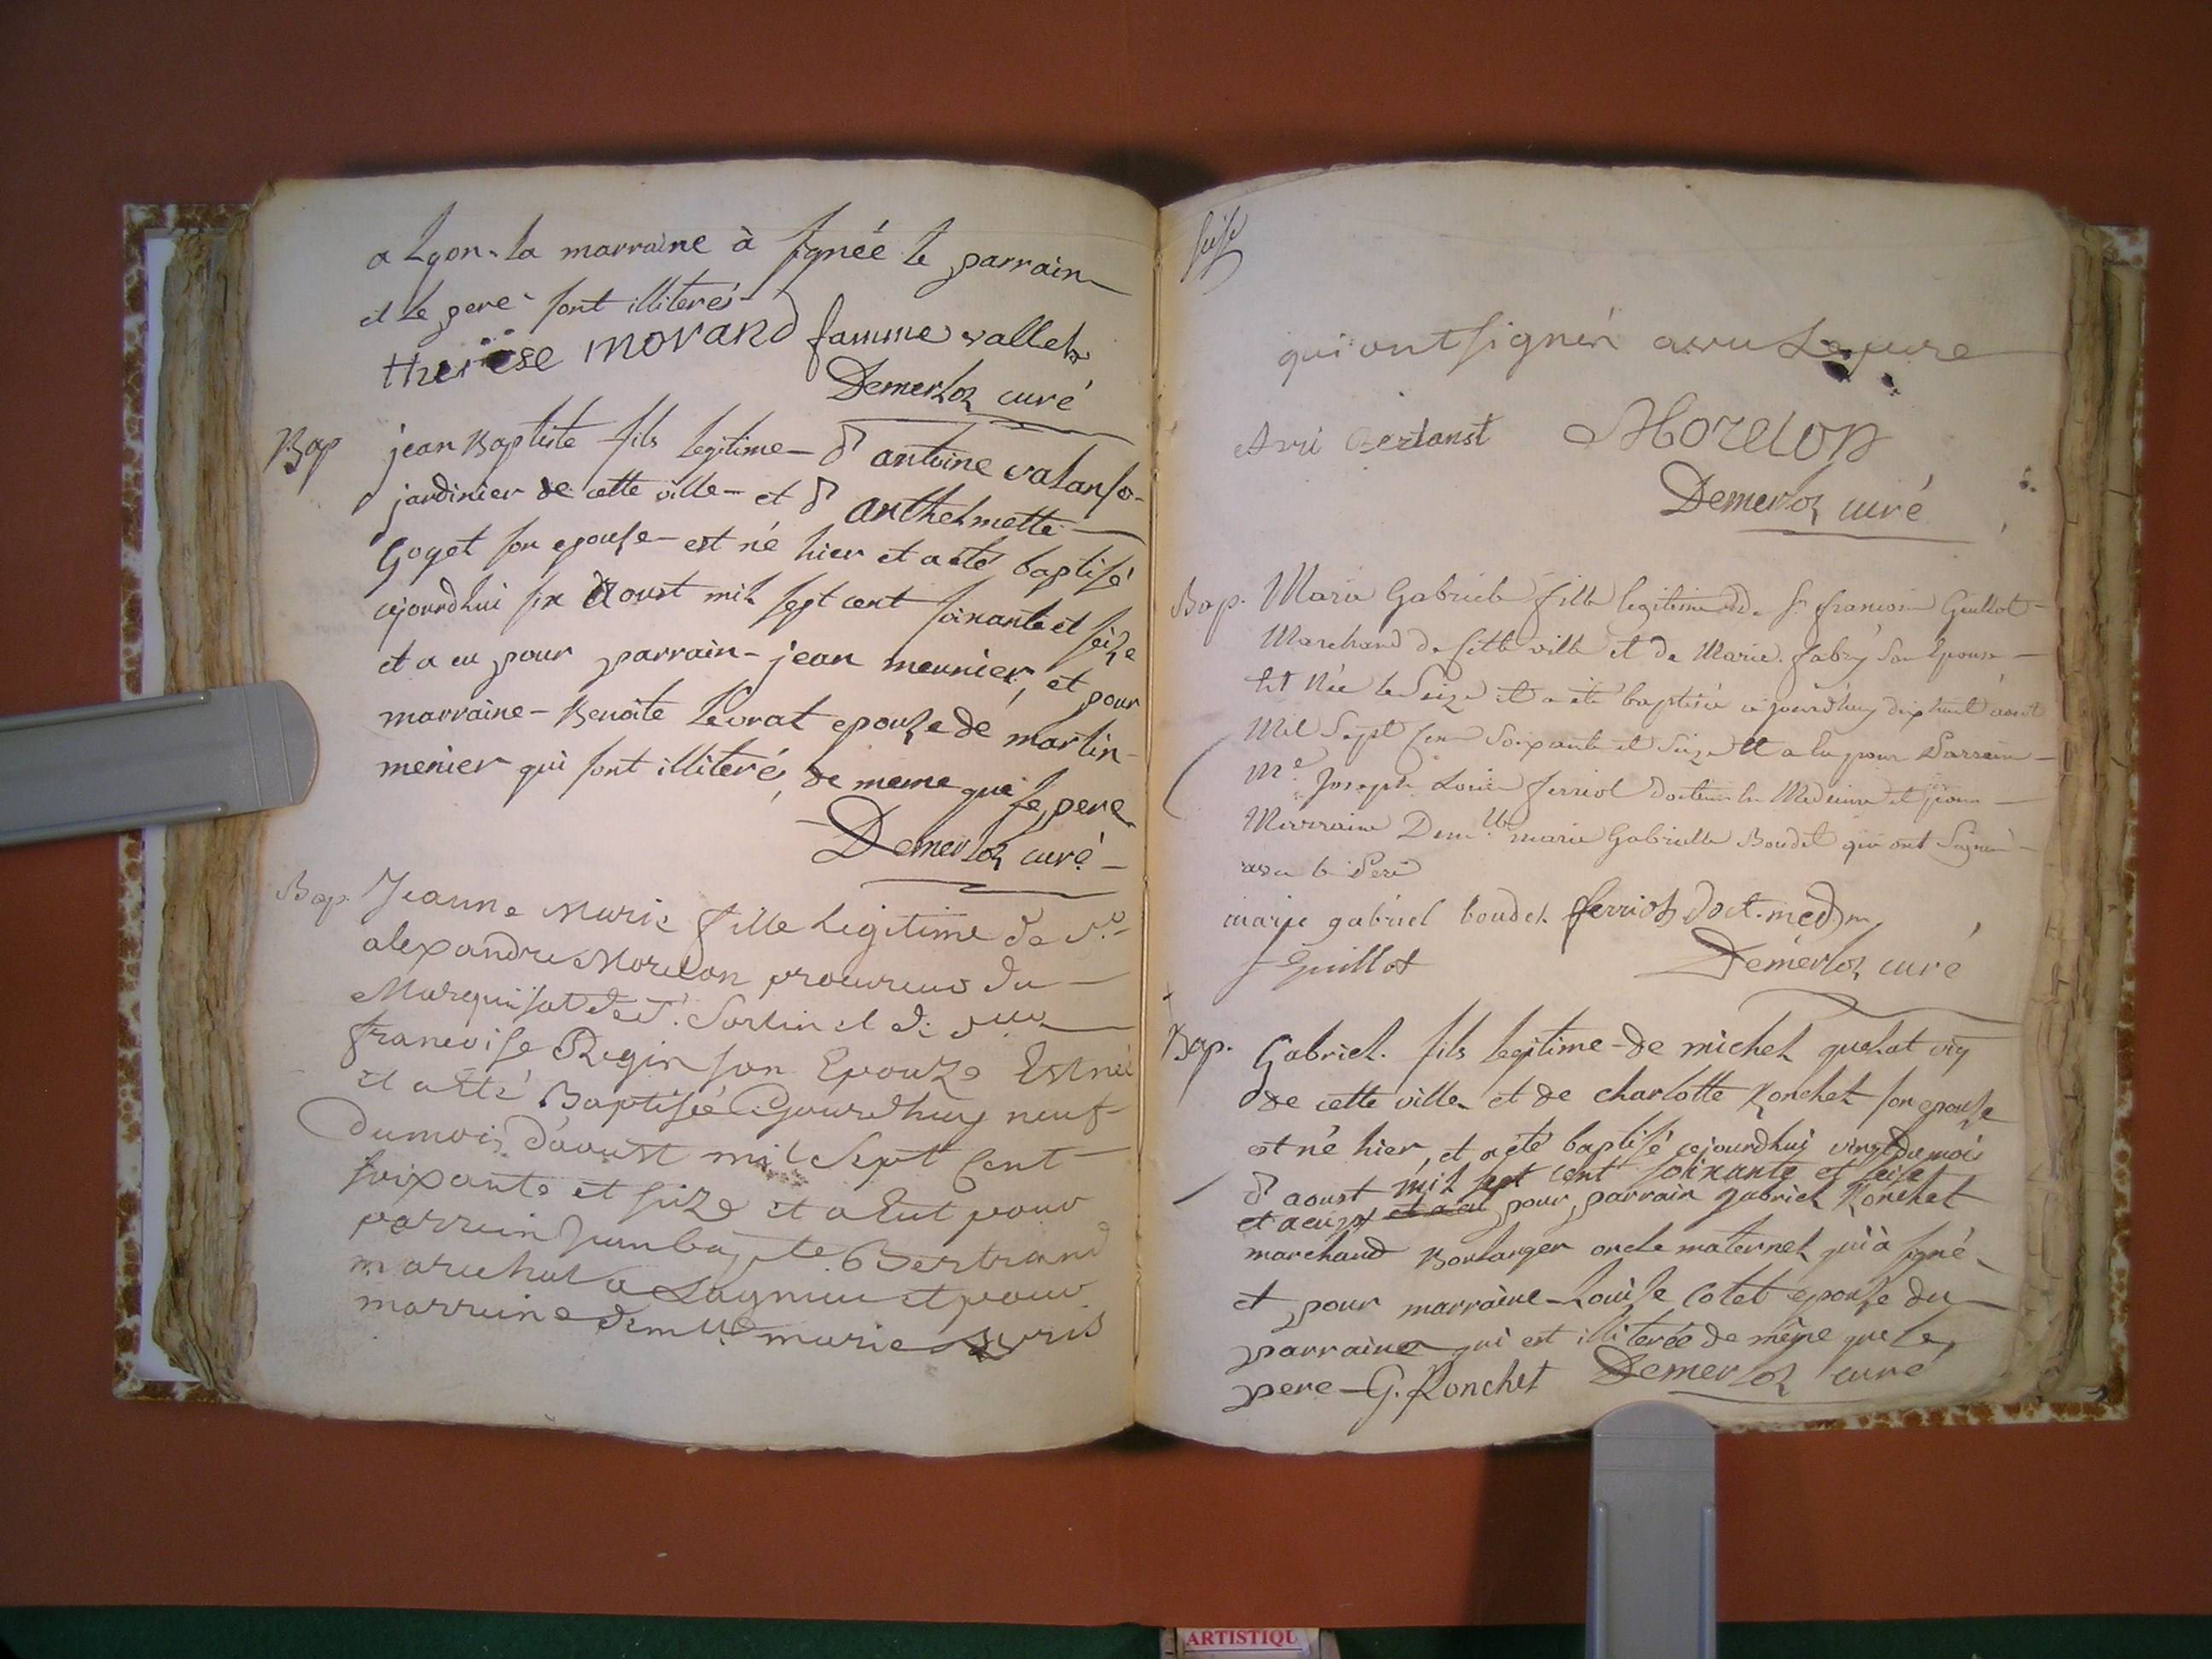 a Lyon. la marraine à signée le parrain
et le pere sont illiterés
therése morand famme vallet
Demerloz curé
Bap jean Baptiste fils legitime d'antoine valanso
jardinier de cette ville et d'anthelmette
Goyet son epouse est né hier et a eté baptisé
cejourdhui six d'aoust mil sept cent soixante et seize
et a eu pour parrain jean meunier, et pour
marraine Benoite Levrat epouse de martin
menier qui sont illiterés, de meme que le pere
Demerloz curé
Bap. Jeanne Marie fille legitime de Sr
alexandre Morelon procureur du
Marquisat de St. Sorlin et de
francoise Regin son Epouze Est née
et a été Baptisée Cejourdhuy neuf
du mois d'aoust mil Sept Cent
soixante et seize et a Eut pour
parrein Jean baptiste Bertrand
marechal a Lagnieu et pour
marreine demlle marie avris
qui ont signés avec Le pere
Avri Bertrand Morelon
Demerloz curé
Bap. Marie Gabrielle fille legitime de Sr françois Guillot
Marchand de Cette ville et de Marie fabry Son Epouse
Est Née le Seize et a été baptisée cejourd'huy dix huit aout
Mil Sept Cent Soixante et Seize et a Eu pour Parrain
Me Joseph Louis ferriol docteur En Medecine et pour
Marraine Demlle marie Gabrielle Boudet qui ont Signé
avec le Pere
marie gabriel boudet ferriol doct. medm
Guillot Demerloz curé
Bap. Gabriel fils legitime de michel quelat vig
de cette ville et de charlotte Ronchet son epouse
est né hier, et a eté baptisé cejourdhui vingt du mois
d'aoust mil sept cent soixante et seise
et a eu et a eu pour parrain gabriel Ronchet
marchand Boulanger oncle maternel qui à signé
et pour marraine Louise Cotet epouse du
parraine qui est illiterée de même que le
pere G. Ronchet Demerloz curé
ARTISTIQU